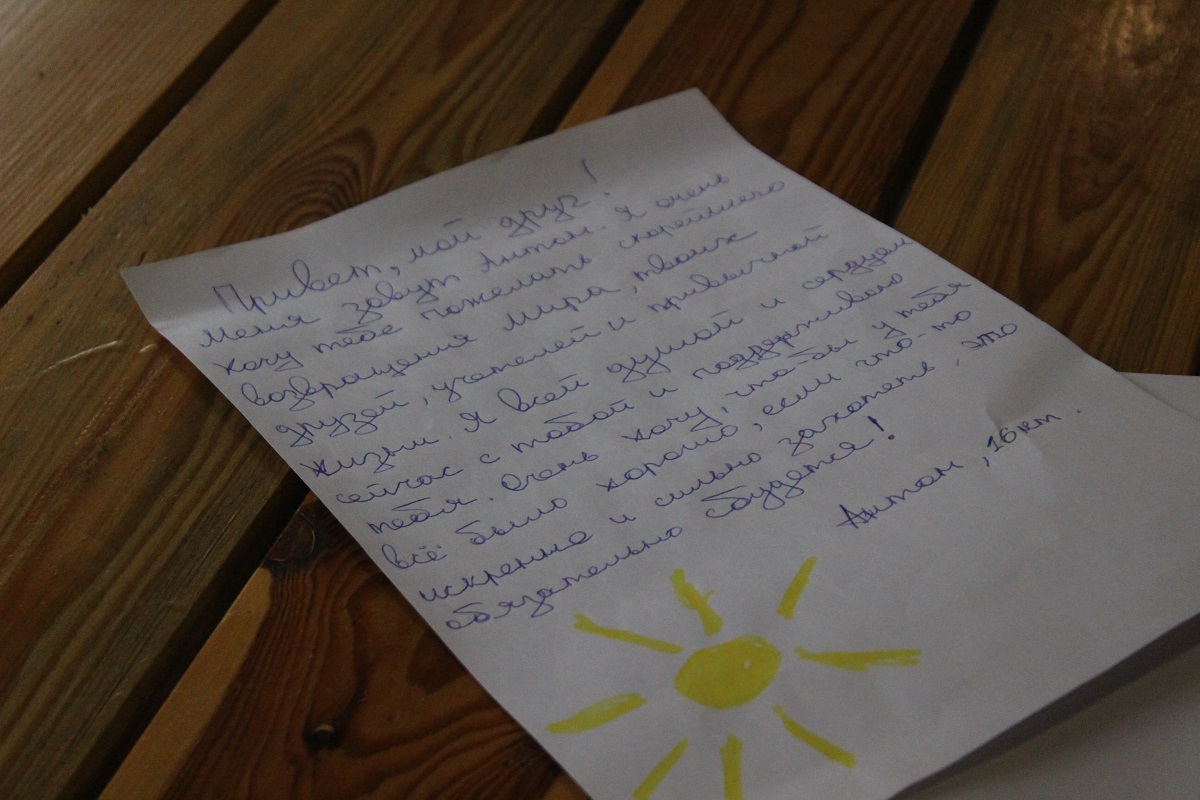 Привет, мой друг!
Меня зовут Антон. Я очень
хочу тебе пожелать скорейшего
возвращения мира, твоих
друзей, учителей и привычной
жизни. Я всей душой и сердцем
сейчас с тобой и поддерживаю
тебя. Очень хочу, что-бы у тебя
всё было хорошо, если что-то
искренне и сильно захотеть, это
обязательно сбудется!
Антон, 16 км.